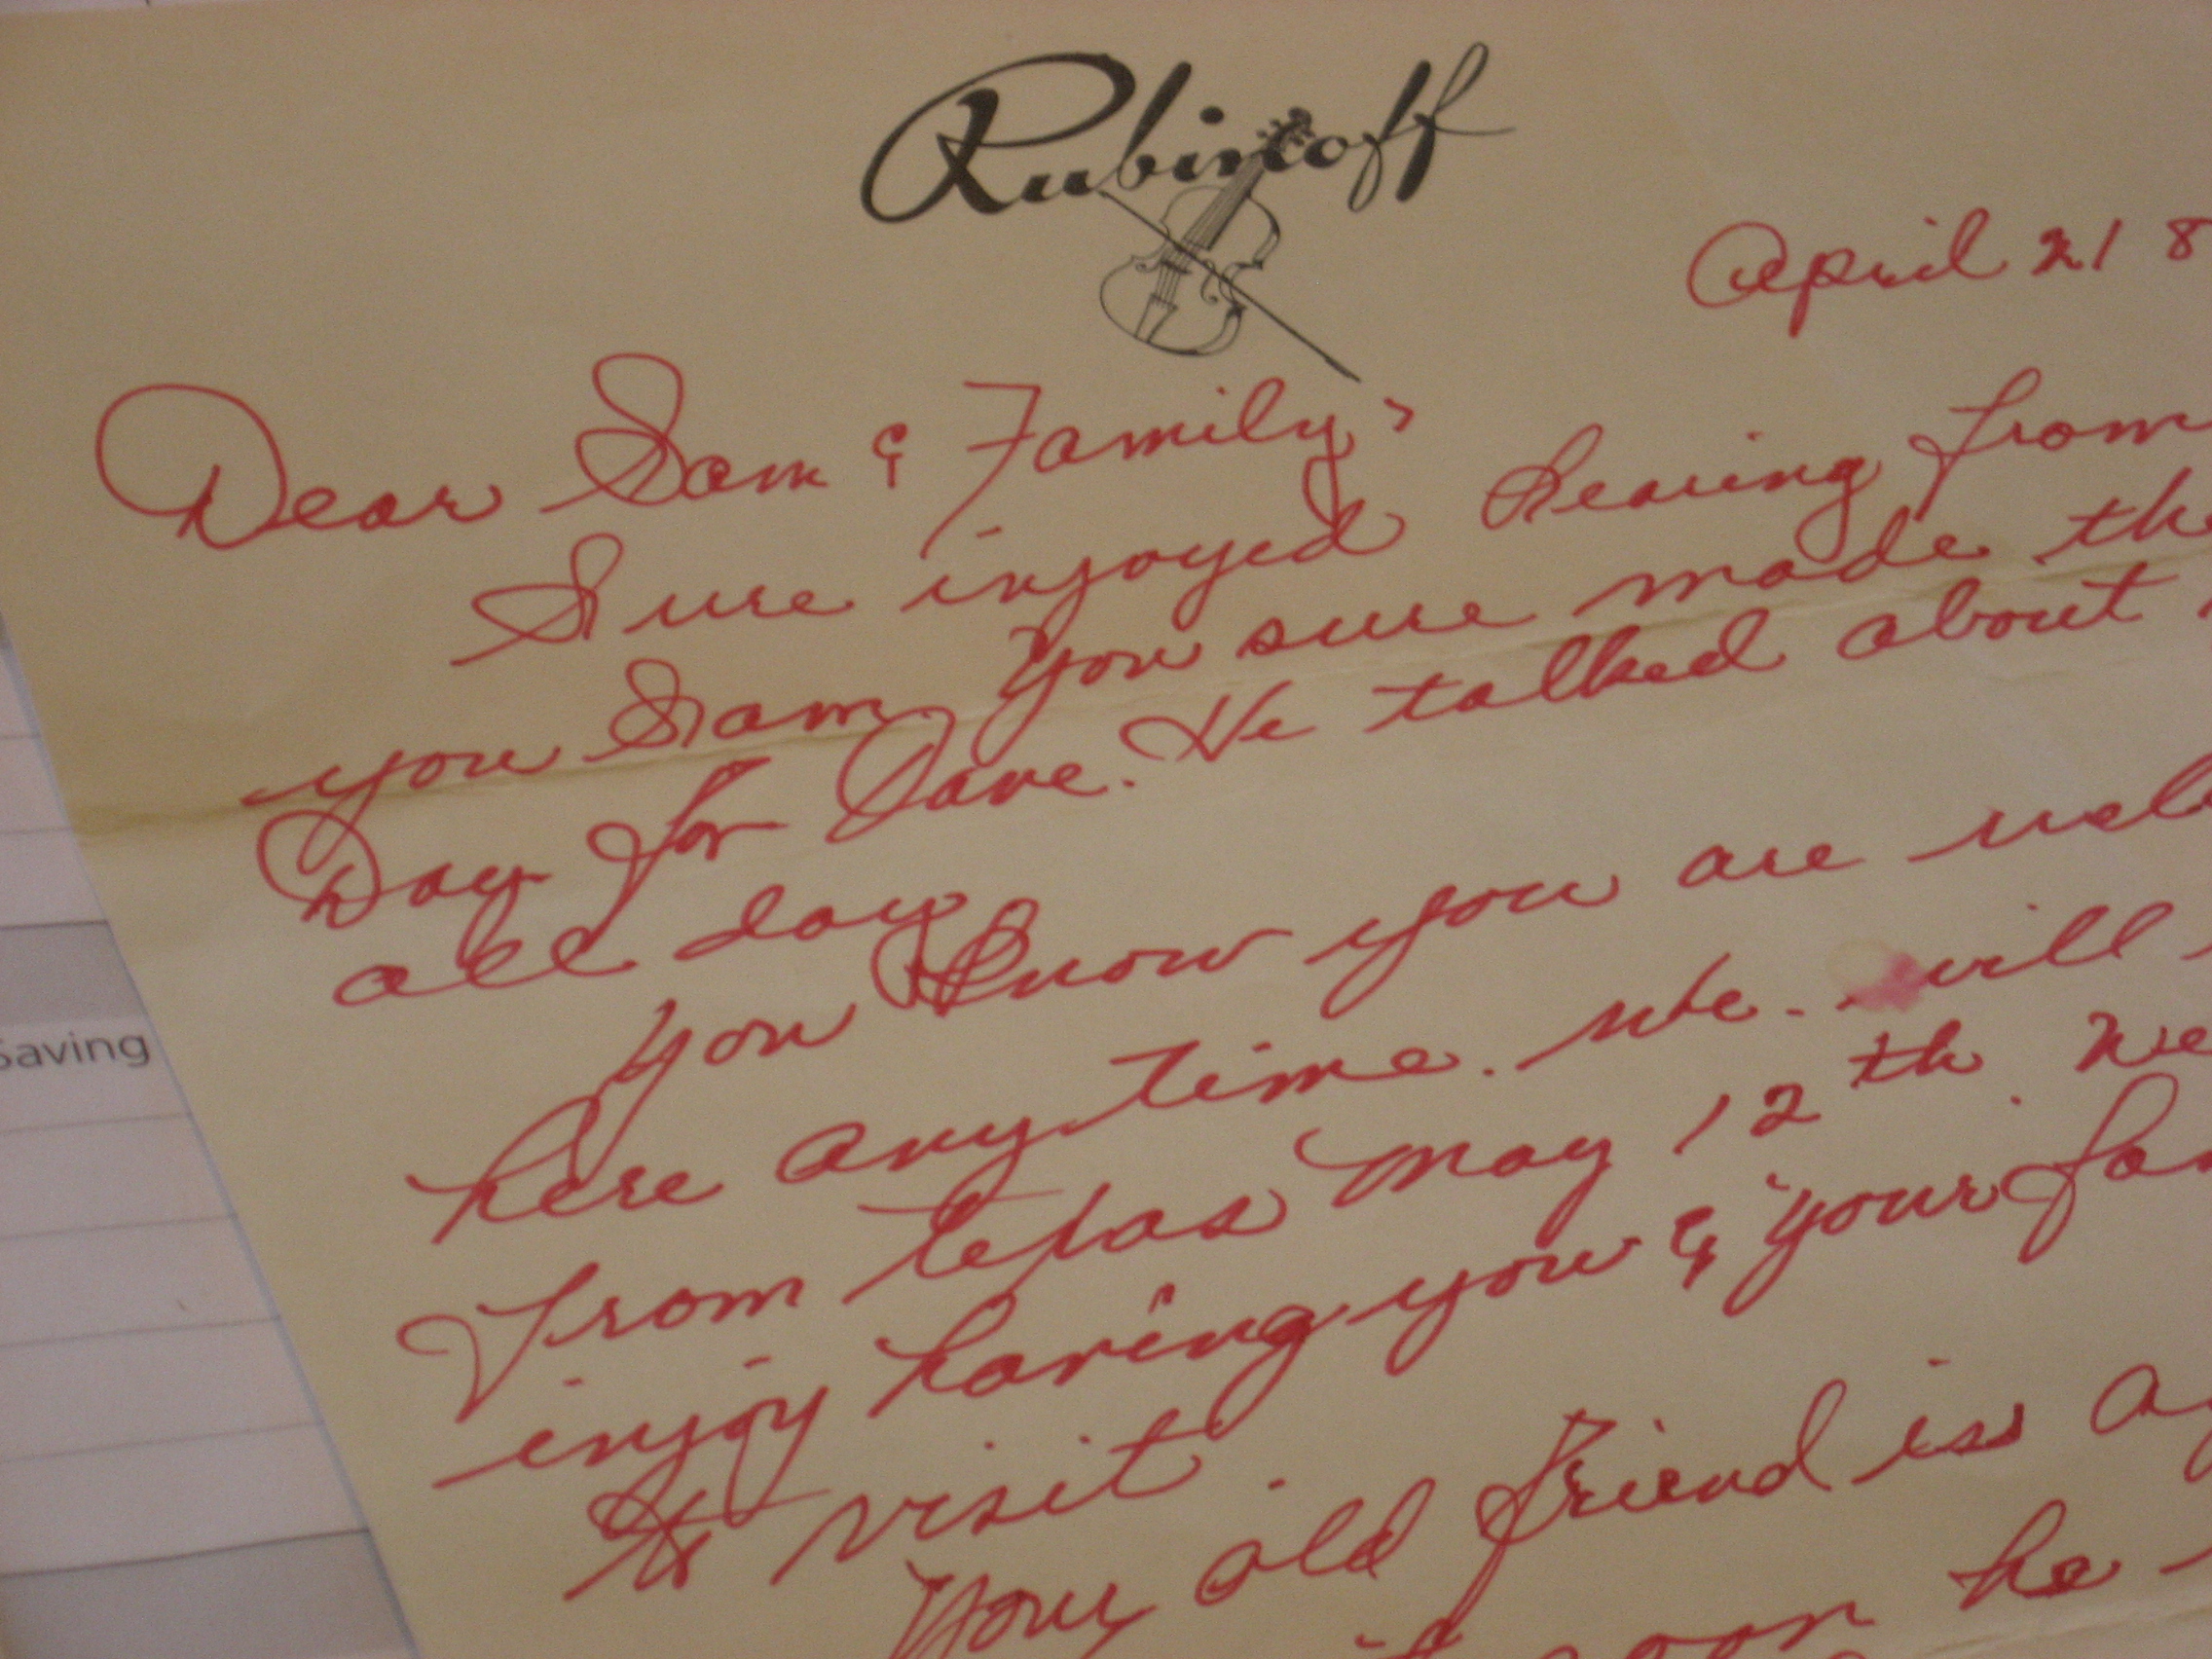 Rubinoff
April 21 8
Dear Sam & Family,
Sure injoyed hearing from
you Sam you sure made th
Day for Dave. He talked about
all day
you know you are wel
here anytime. We will
from texas may 12th we
injoy having you & your fa
to visit.
Your old friend is
soon he
Saving